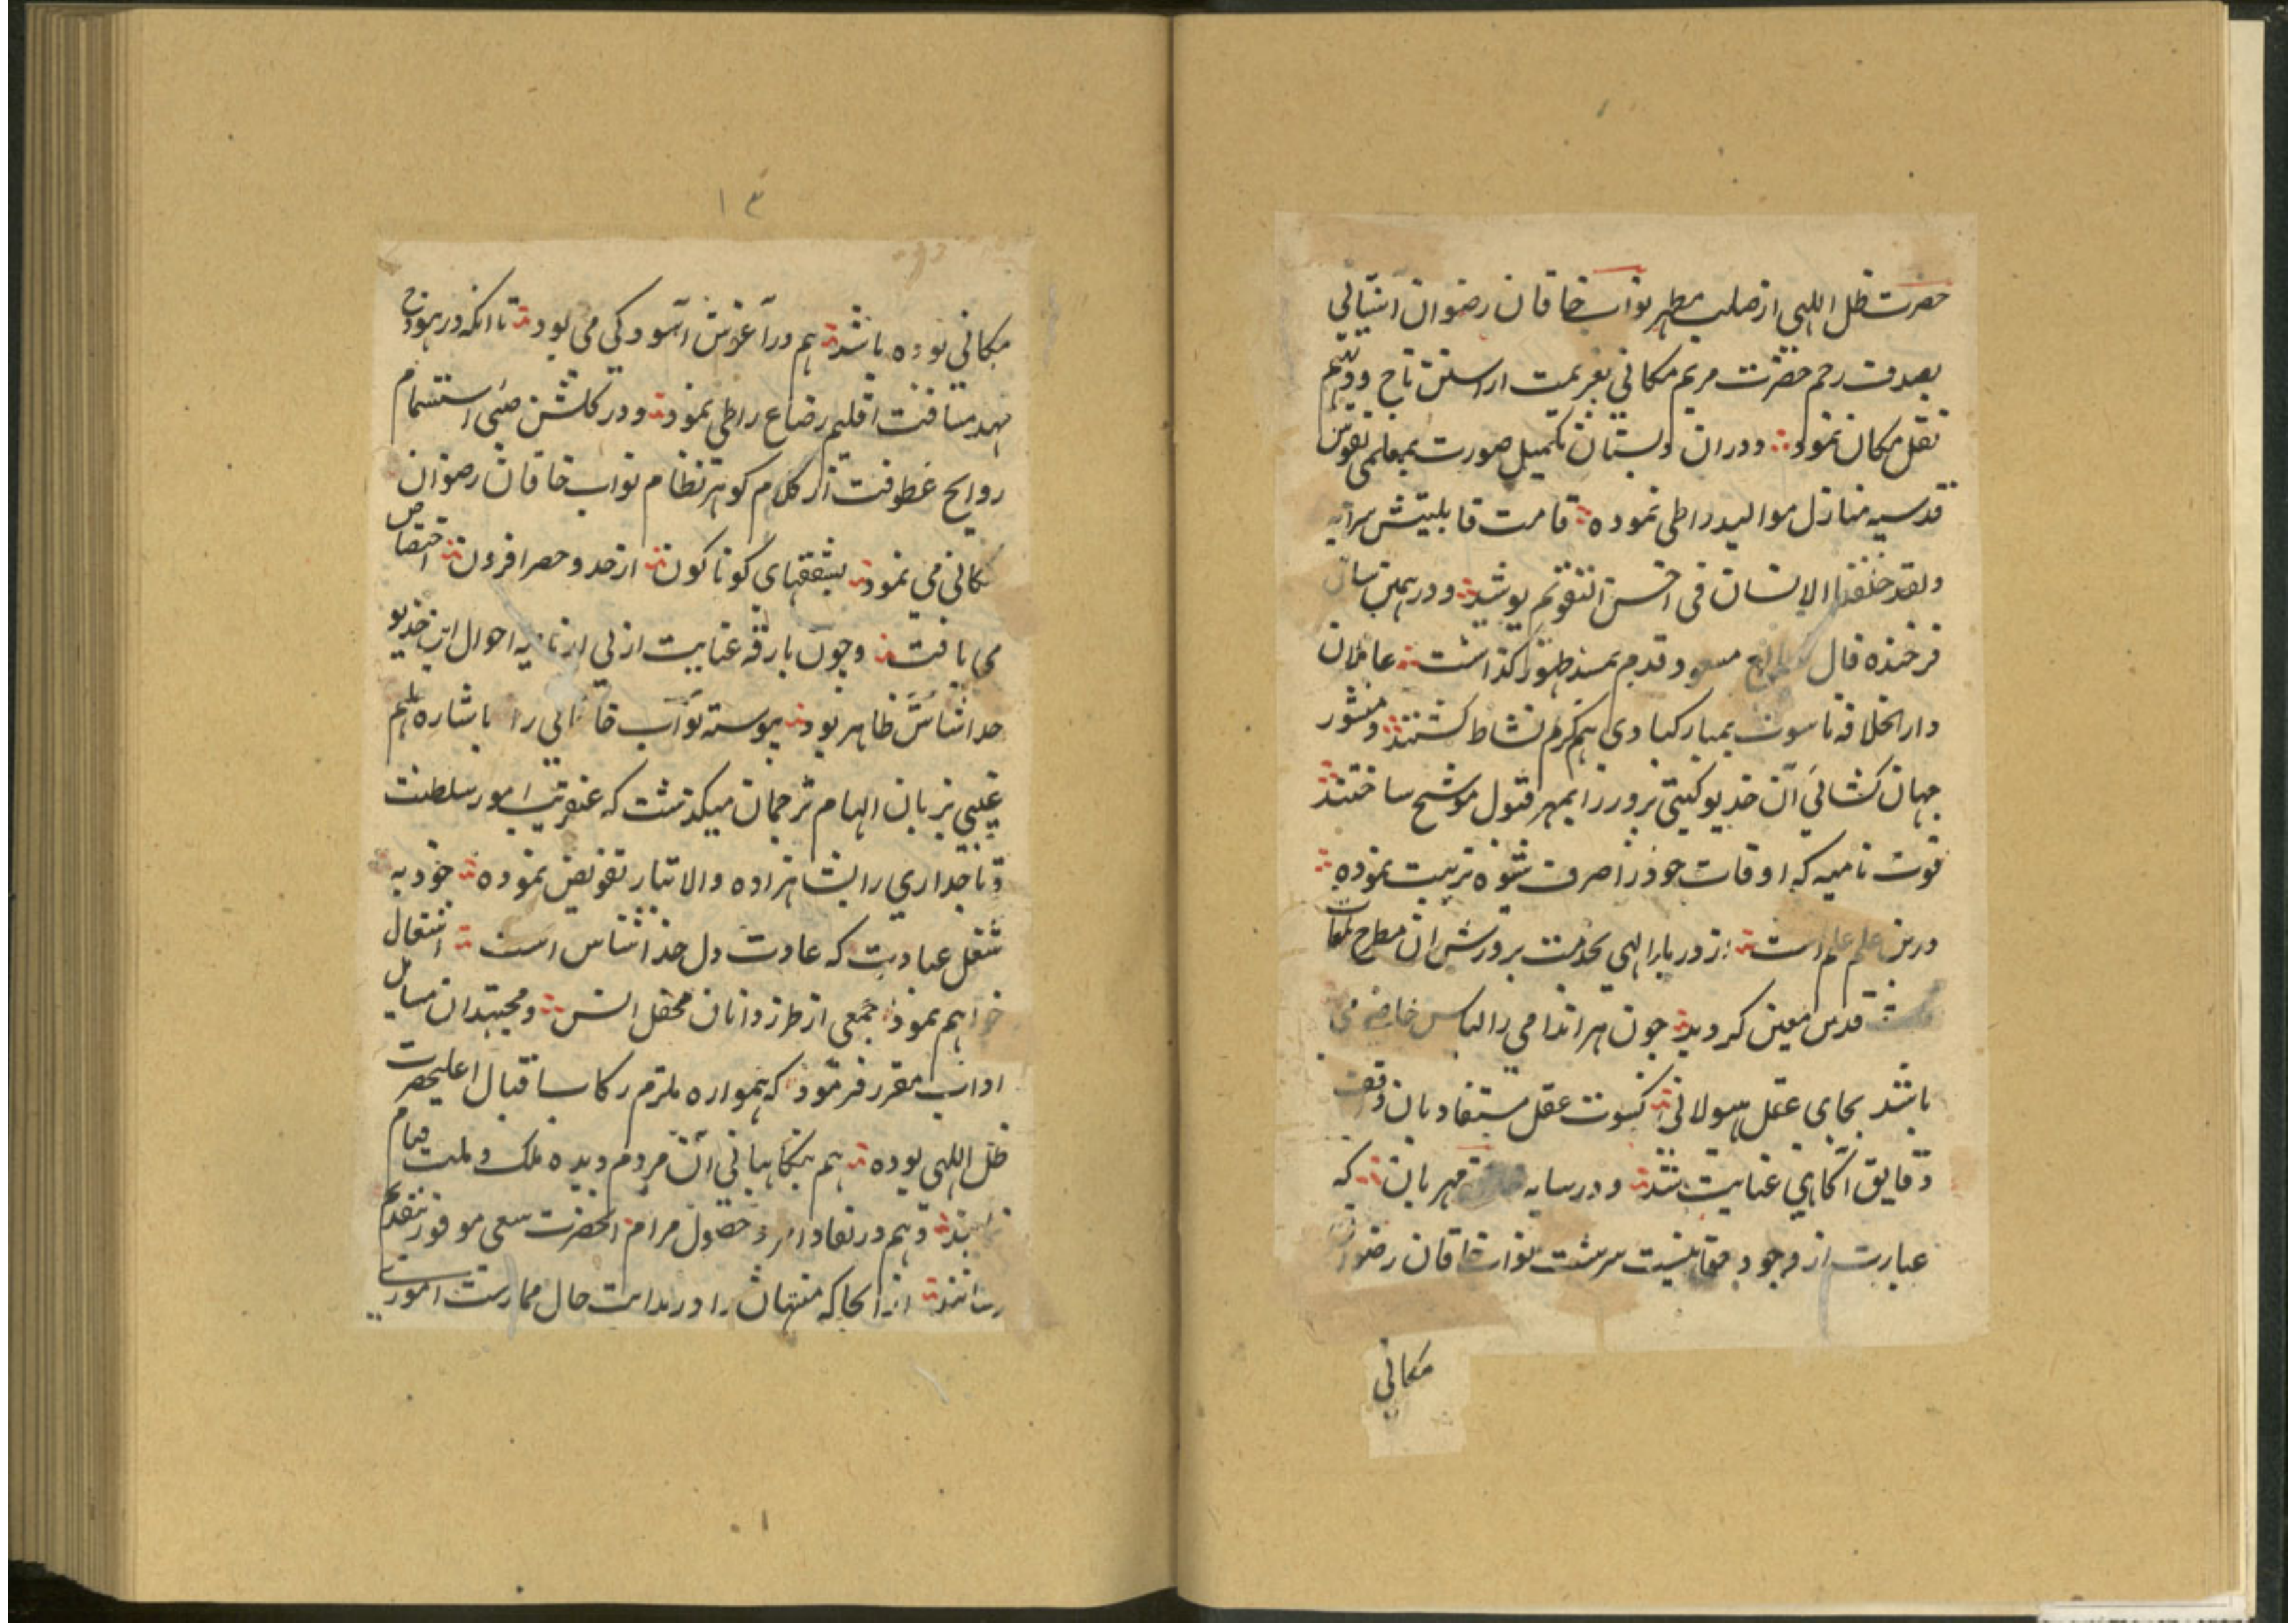 حضرت ظل اللهی از صلب مطهر نواب خاقان رضوان آشیانی
بصدف رحم حضرت مریم مکانی بعزیمت آراستن تاج و دیهیم
نقل مکان نمود و در آن دبستان تکمیل صورت بمعلمی نفوس
قدسیه منازل موالید را طی نموده قامت قابلیتش سرایه
ولقد خلقنا الانسان فی احسن التقویم پوشید و در همین سال
فرخنده فال مسعود قدم بمسند ظهور گذاشت عاملان
دار الخلافه ناسوت بمبارکبادی هم گرم نشاط گشتند و منشور
جهان گشائی آن خدیو گیتی پرور را بمهر قبول موشح ساختند
قوت نامیه که اوقات خود را صرف شیوه تربیت نموده
درین علم علم است از دربار الهی بخدمت پرورش آن مطرح لمعات
قدس معین گردید چون هر اندامی را لباس خاصه می
باشد بجای عقل هیولانی کسوت عقل مستفاد بان واقف
دقایق آگاهی عنایت شد و در سایه مهربان که
عبارت از وجود سرشت نواب خاقان رضوان
مکانی
۱۳
مکانی بوده باشد هم در آغوش آسودگی می بود تا آنکه در هودج
مهد مسافت اقلیم رضاع را طی نمود و در گلشن صبی استشمام
روایح عطوفت از کلام گوهر نظام نواب خاقان رضوان
مکانی می نمود بشفقهای گوناگون از حد و حصر افزون اختصاص
می یافت و چون بارقه عنایت ازلی از ناصیه احوال این خدیو
خدا شناس ظاهر بود پیوسته نواب خاقانی را باشاره ملهم
غیبی بزبان الهام ترجمان میگذشت که عنقریب امور سلطنت
و تاجداری را بشاهزاده والا تبار تفویض نموده خود به
شغل عبادت که عادت دل خدا شناس است اشتغال
خواهم نمود جمعی از طرز دانان محفل انس و مجتهدان مسایل
اداب مقرر فرمود که همواره ملزم رکاب اقبال اعلیحضرت
ظل اللهی بوده هم بنگاهبانی آن مردم دیده ملک و ملت قیام
نمایند و هم در نفاذ امر و حصول مرام آنحضرت سعی موفور بتقدیم
رسانند از آنجا که منتهیان را در بدایت حال ممارست اموری
۱۰